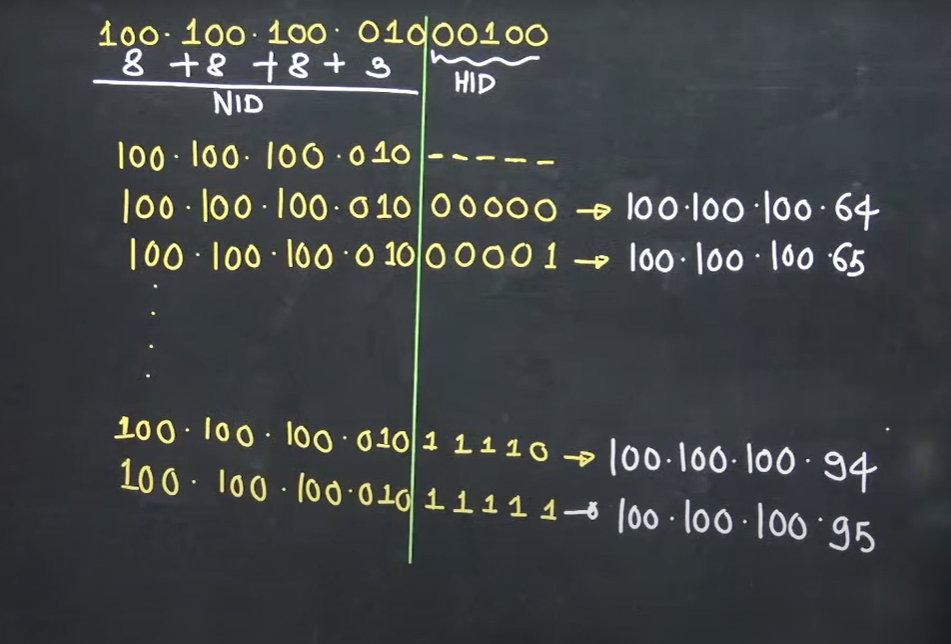 100. 100. 100. 01000100
8 +8 +8+ 3
NID
HID
100.100. 100 .010 -----
100.100.100.010 00000 → 100.100.100.64
100.100.100.010 00001 → 100.100.100.65
.
.
.
100.100.100.010 11110 → 100.100.100.94
100.100.100.010 11111 → 100.100.100.95